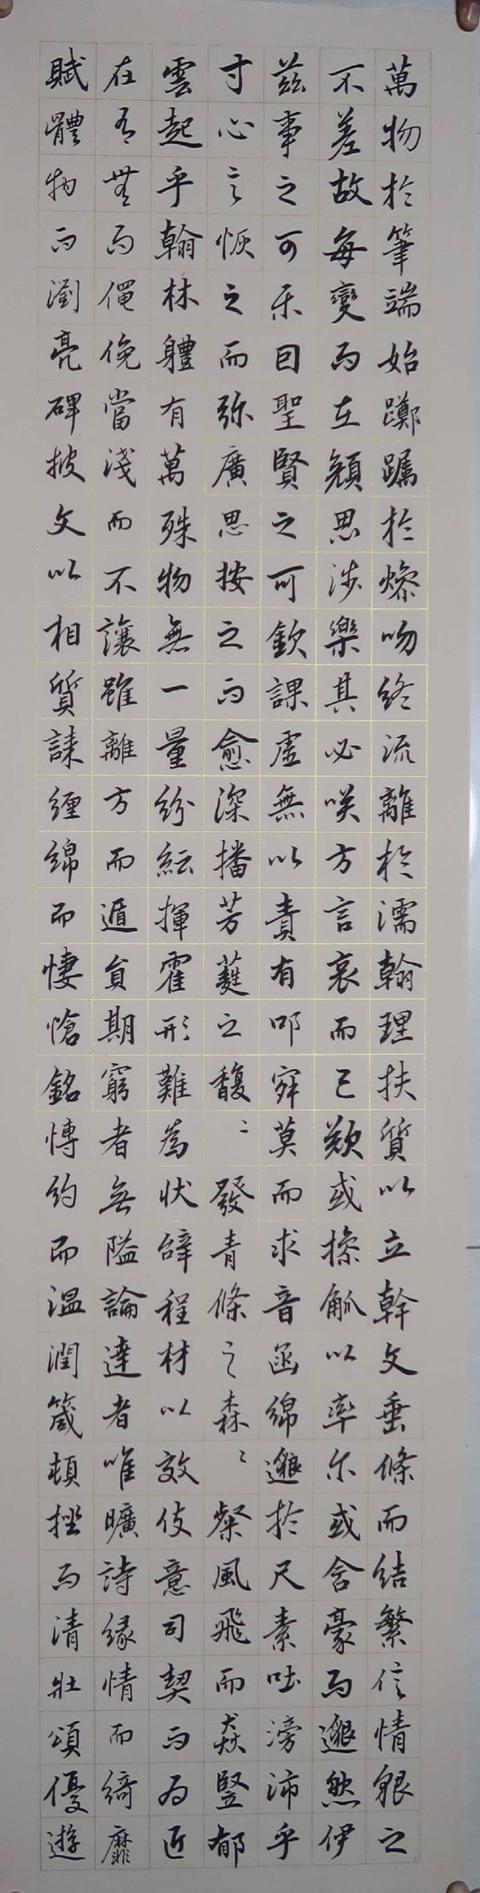 萬物於筆端始躑躅於燥吻終流離於濡翰理扶質以立幹文垂條而結繁信情貌之
不差故每變而在顏思涉樂其必咲方言哀而已歎或操觚以率尔或含豪而邈然伊
茲事之可乐固聖賢之可欽課虛無以責有叩寂莫而求音函綿邈於尺素吐滂沛乎
寸心言恢之而弥廣思按之而愈深播芳蕤之馥〻發青條之森〻粲風飛而猋豎郁
雲起乎翰林體有萬殊物無一量紛紜揮霍形難為狀辭程材以效伎意司契而為匠
在有無而僶俛當淺而不讓雖離方而遁員期窮者無隘論達者唯曠詩緣情而綺靡
賦體物而瀏亮碑披文以相質誄纏綿而悽愴銘博約而温潤箴頓挫而清壯頌優遊